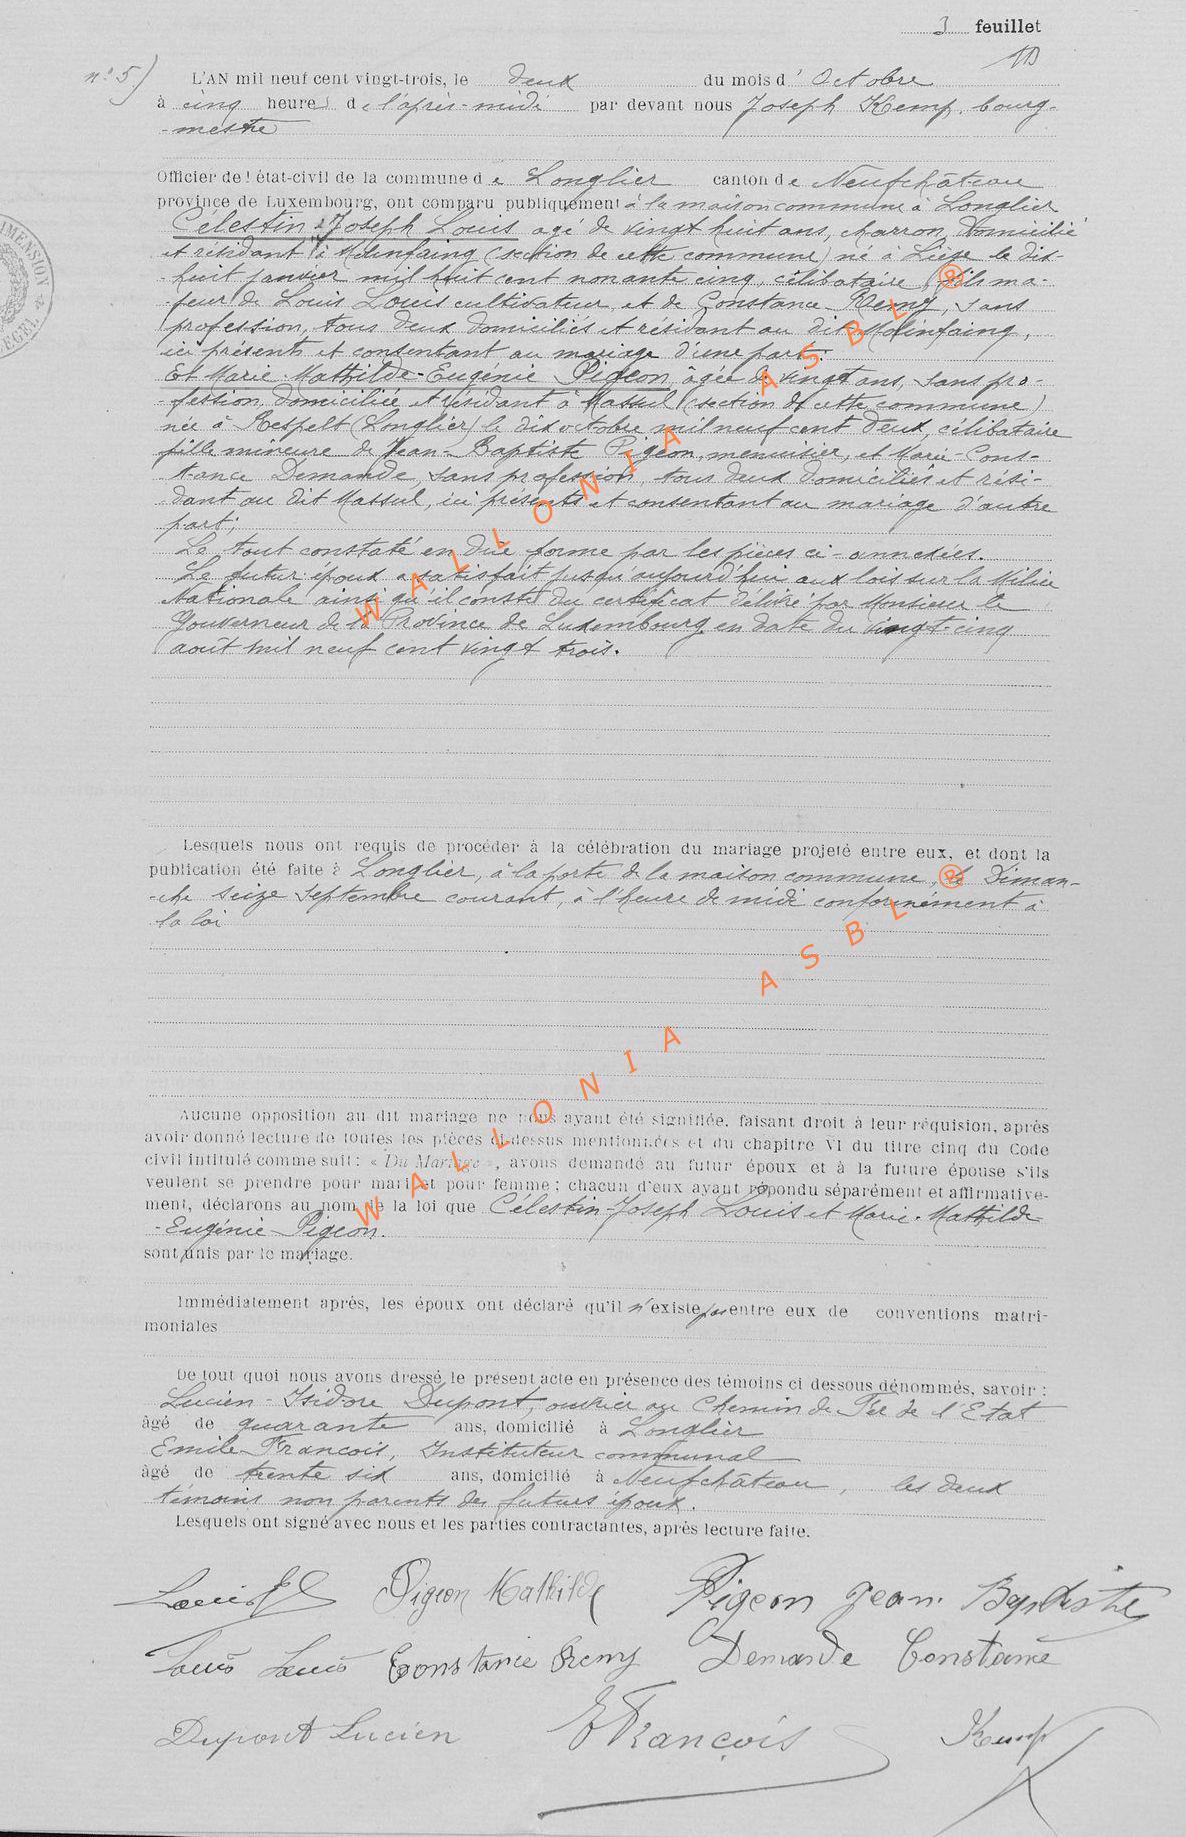 3 feuillet
n° 5)
L'AN mil neuf cent vingt-trois, le deux du mois d' Octobre
à cinq heures de l'après-midi par devant nous Joseph Kemp, bourg-
-mestre
Officier de l'état-civil de la commune de Longlier canton de Neufchâteau
province de Luxembourg, ont comparu publiquement à la maison commune à Longlier
Célestin-Joseph Louis agé de vingt huit ans, charron, domicilié
et résidant à Molinfaing (section de cette commune) né à Liège le dix-
-huit janvier mil huit cent nonante cinq, célibataire, fils ma-
-jeur de Louis Louis cultivateur et de Constance Remy, sans
profession, tous deux domiciliés et résidant au dit Molinfaing,
ici présents et consentant au mariage d'une part:
Et Marie-Mathilde-Eugénie Pigeon, âgée de vingt ans, sans pro-
-fession domiciliée et résidant à Massul (section de cette commune)
née à Respelt (Longlier) le dix octobre mil neuf cent deux, célibataire
fille mineure de Jean-Baptiste Pigeon, menuisier, et Marie-Cons-
-tance Demande, sans profession, tous deux domiciliés et rési-
dant au dit Massul, ici présents et consentant au mariage d'autre
part;
Le tout constaté en due forme par les pièces ci-annexées.
Le futur époux a satisfait jusqu'aujourd'hui aux lois sur la Milice
Nationale ainsi qu'il conste du certificat délivré par Monsieur le
Gouverneur de la Province de Luxembourg en date du vingt-cinq
août mil neuf cent vingt trois.
Lesquels nous ont requis de procéder à la célébration du mariage projeté entre eux, et dont la
publication été faite à Longlier, à la porte de la maison commune, le Diman-
-che seize septembre courant, à l'heure de midi conformément à
la loi
Aucune opposition au dit mariage ne nous ayant été signifiée, faisant droit à leur réquision, après
avoir donné lecture de toutes les pièces ci-dessus mentionnées et du chapitre VI du titre cinq du Code
civil intitulé comme suit: « Du Mariage », avons demandé au futur époux et à la future épouse s'ils
veulent se prendre pour mari et pour femme; chacun d'eux ayant répondu séparément et affirmative-
ment, déclarons au nom de la loi que Célestin-Joseph Louis et Marie-Mathilde
-Eugénie Pigeon.
sont unis par le mariage.
Immédiatement après, les époux ont déclaré qu'il n'existe pas entre eux de conventions matri-
moniales
De tout quoi nous avons dressé le présent acte en présence des témoins ci dessous dénommés, savoir :
Lucien-Isidore Dupont, ouvrier au Chemin de Fer de l'Etat
âgé de quarante ans, domicilié à Longlier
Emile François, Instituteur communal
âgé de trente six ans, domicilié à Neufchâteau, les deux
témoins non parents des futurs époux.
Lesquels ont signé avec nous et les parties contractantes, après lecture faite.
Louis Pigeon Mathilde Pigeon Jean Baptiste
Louis Louis Constance Remy Demande Constance
Dupont Lucien E François Kemp
WALLONIA ASBL ®
WALLONIA ASBL ®